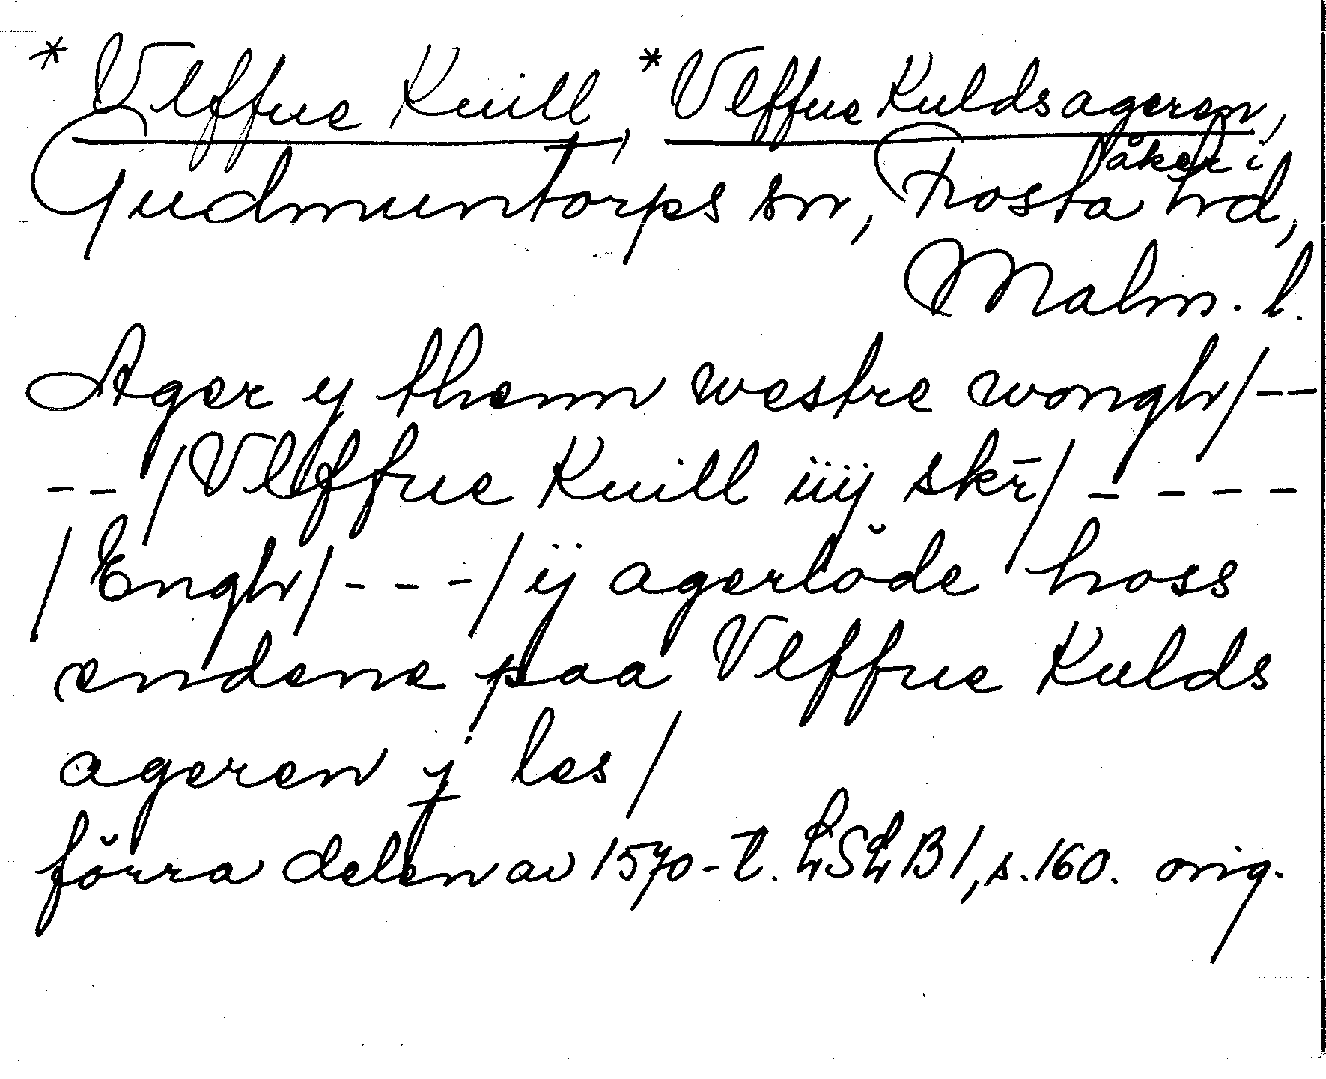 * Vlffue Kuill, * Vlffue Kuldsageren,
åker i
Gudmuntorps sn, Frosta hd,
Malm. l.
Ager y thenn westre wongh/--
--/Vlffue Kuill iiij skr̄/----
/Engh/---/ij agerlöde hoss
endene paa Vlffue Kulds
ageren j les/
förra delen av 1570-t. LSLB1, s.160. orig.